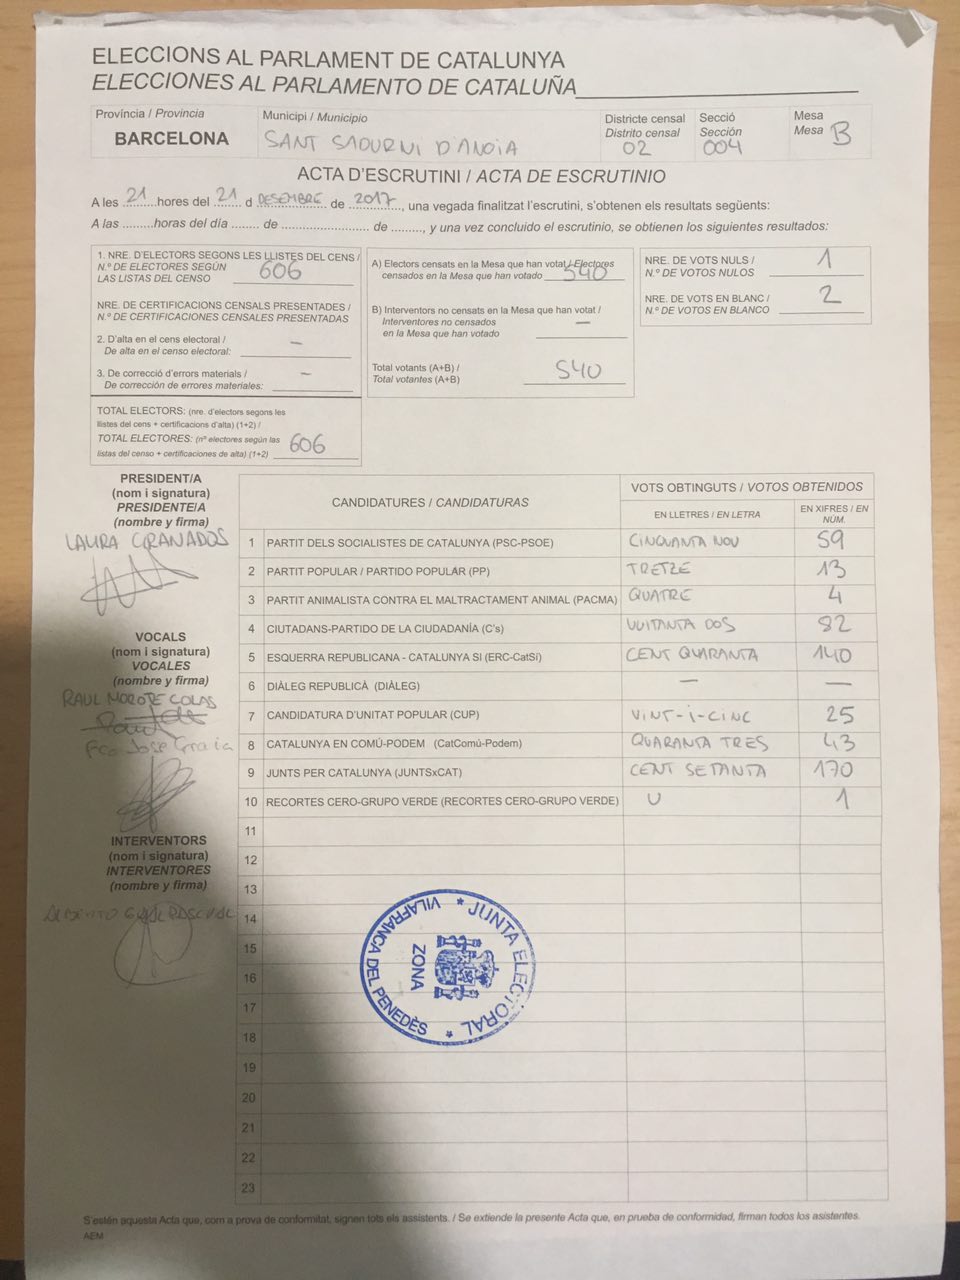 ELECCIONS AL PARLAMENT DE CATALUNYA
ELECCIONES AL PARLAMENTO DE CATALUÑA
Província / Provincia
BARCELONA
Municipi / Municipio
SANT SADURNI D'ANOIA
Districte censal
Distrito censal
02
Secció
Sección
004
Mesa
Mesa B
ACTA D'ESCRUTINI / ACTA DE ESCRUTINIO
A les 21 hores del 21 d DESEMBRE de 2017, una vegada finalitzat l'escrutini, s'obtenen els resultats següents:
A las .........horas del día ....... de ........................... de ........, y una vez concluido el escrutinio, se obtienen los siguientes resultados:
1. NRE. D'ELECTORS SEGONS LES LLISTES DEL CENS /
N.º DE ELECTORES SEGÚN
LAS LISTAS DEL CENSO 606
NRE. DE CERTIFICACIONS CENSALS PRESENTADES /
N.º DE CERTIFICACIONES CENSALES PRESENTADAS
2. D'alta en el cens electoral /
De alta en el censo electoral: —
3. De correcció d'errors materials /
De corrección de errores materiales: —
TOTAL ELECTORS: (nre. d'electors segons les
llistes del cens + certificacions d'alta) (1+2) /
TOTAL ELECTORES: (nº electores según las
listas del censo + certificaciones de alta) (1+2) 606
A) Electors censats en la Mesa que han votat / Electores
censados en la Mesa que han votado 540
B) Interventors no censats en la Mesa que han votat /
Interventores no censados
en la Mesa que han votado —
Total votants (A+B) /
Total votantes (A+B) 540
NRE. DE VOTS NULS /
N.º DE VOTOS NULOS 1
NRE. DE VOTS EN BLANC /
N.º DE VOTOS EN BLANCO 2
PRESIDENT/A
(nom i signatura)
PRESIDENTE/A
(nombre y firma)
LAURA GRANADOS
VOCALS
(nom i signatura)
VOCALES
(nombre y firma)
RAUL MOROTE COLAS
Fco Jose Gracia
INTERVENTORS
(nom i signatura)
INTERVENTORES
(nombre y firma)
CANDIDATURES / CANDIDATURAS
VOTS OBTINGUTS / VOTOS OBTENIDOS
EN LLETRES / EN LETRA
EN XIFRES / EN
NÚM.
1 PARTIT DELS SOCIALISTES DE CATALUNYA (PSC-PSOE) CINQUANTA NOU 59
2 PARTIT POPULAR / PARTIDO POPULAR (PP) TRETZE 13
3 PARTIT ANIMALISTA CONTRA EL MALTRACTAMENT ANIMAL (PACMA) QUATRE 4
4 CIUTADANS-PARTIDO DE LA CIUDADANÍA (C's) VUITANTA DOS 82
5 ESQUERRA REPUBLICANA - CATALUNYA SI (ERC-CatSí) CENT QUARANTA 140
6 DIÀLEG REPUBLICÀ (DIÀLEG) — —
7 CANDIDATURA D'UNITAT POPULAR (CUP) VINT-I-CINC 25
8 CATALUNYA EN COMÚ-PODEM (CatComú-Podem) QUARANTA TRES 43
9 JUNTS PER CATALUNYA (JUNTSxCAT) CENT SETANTA 170
10 RECORTES CERO-GRUPO VERDE (RECORTES CERO-GRUPO VERDE) U 1
11
12
13
14
15
16
17
18
19
20
21
22
23
JUNTA ELECTORAL
ZONA
VILAFRANCA DEL PENEDÈS
S'estén aquesta Acta que, com a prova de conformitat, signen tots els assistents. / Se extiende la presente Acta que, en prueba de conformidad, firman todos los asistentes.
AEM